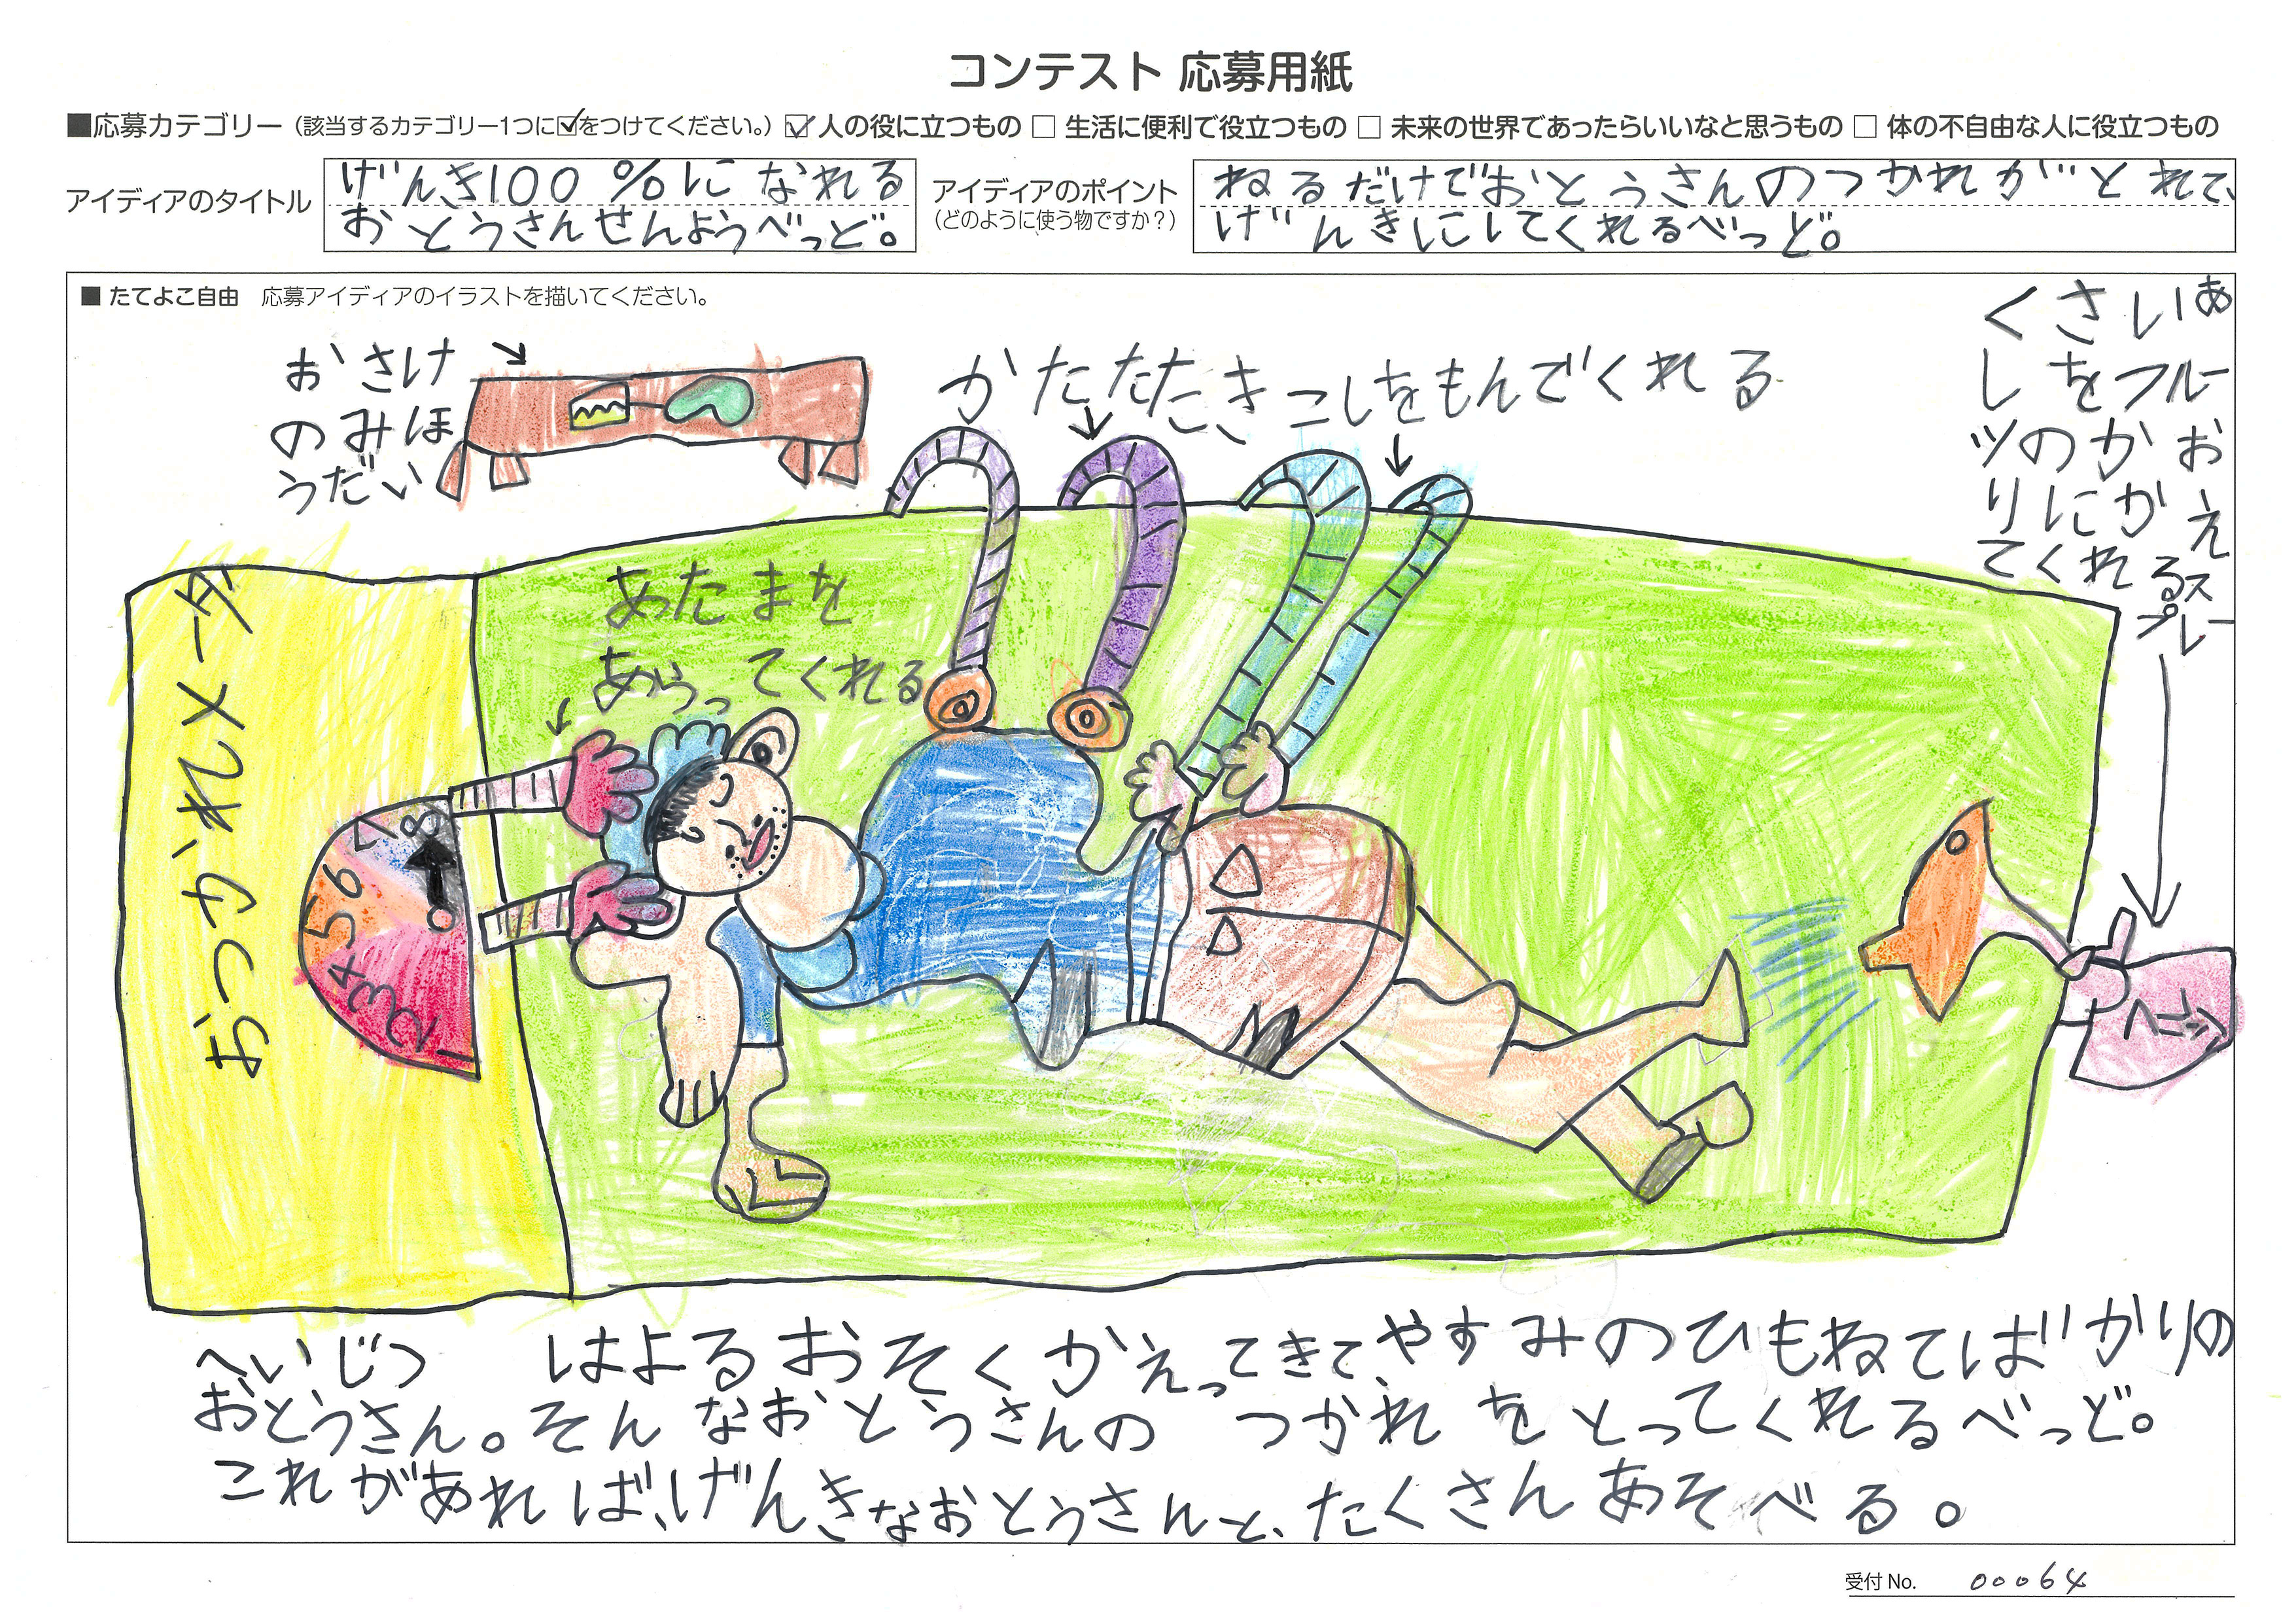 コンテスト 応募用紙
■応募カテゴリー（該当するカテゴリー1つに☑をつけてください。）☑ 人の役に立つもの □ 生活に便利で役立つもの □ 未来の世界であったらいいなと思うもの □ 体の不自由な人に役立つもの
アイディアのタイトル
げんき100%になれる
おとうさんせんようべっど。
アイディアのポイント
（どのように使う物ですか？）
ねるだけでおとうさんのつかれがとれて、
げんきにしてくれるべっど。
■ たてよこ自由 応募アイディアのイラストを描いてください。
おさけ
のみほ
うだい
かたたたき
こしをもんでくれる
あしいさく
フルーをし
おかのツ
えがにり
スるれくて
プレー
あたまを
あらってくれる
おつかれメータ
1 2 3 4 5 6 7 8
へいじつ はよるおそくかえってきて、やすみのひもねてばかりの
おとうさん。そんなおとうさんの つかれをとってくれるべっど。
これがあれば、げんきなおとうさんと、たくさんあそべる。
受付 No. 00064